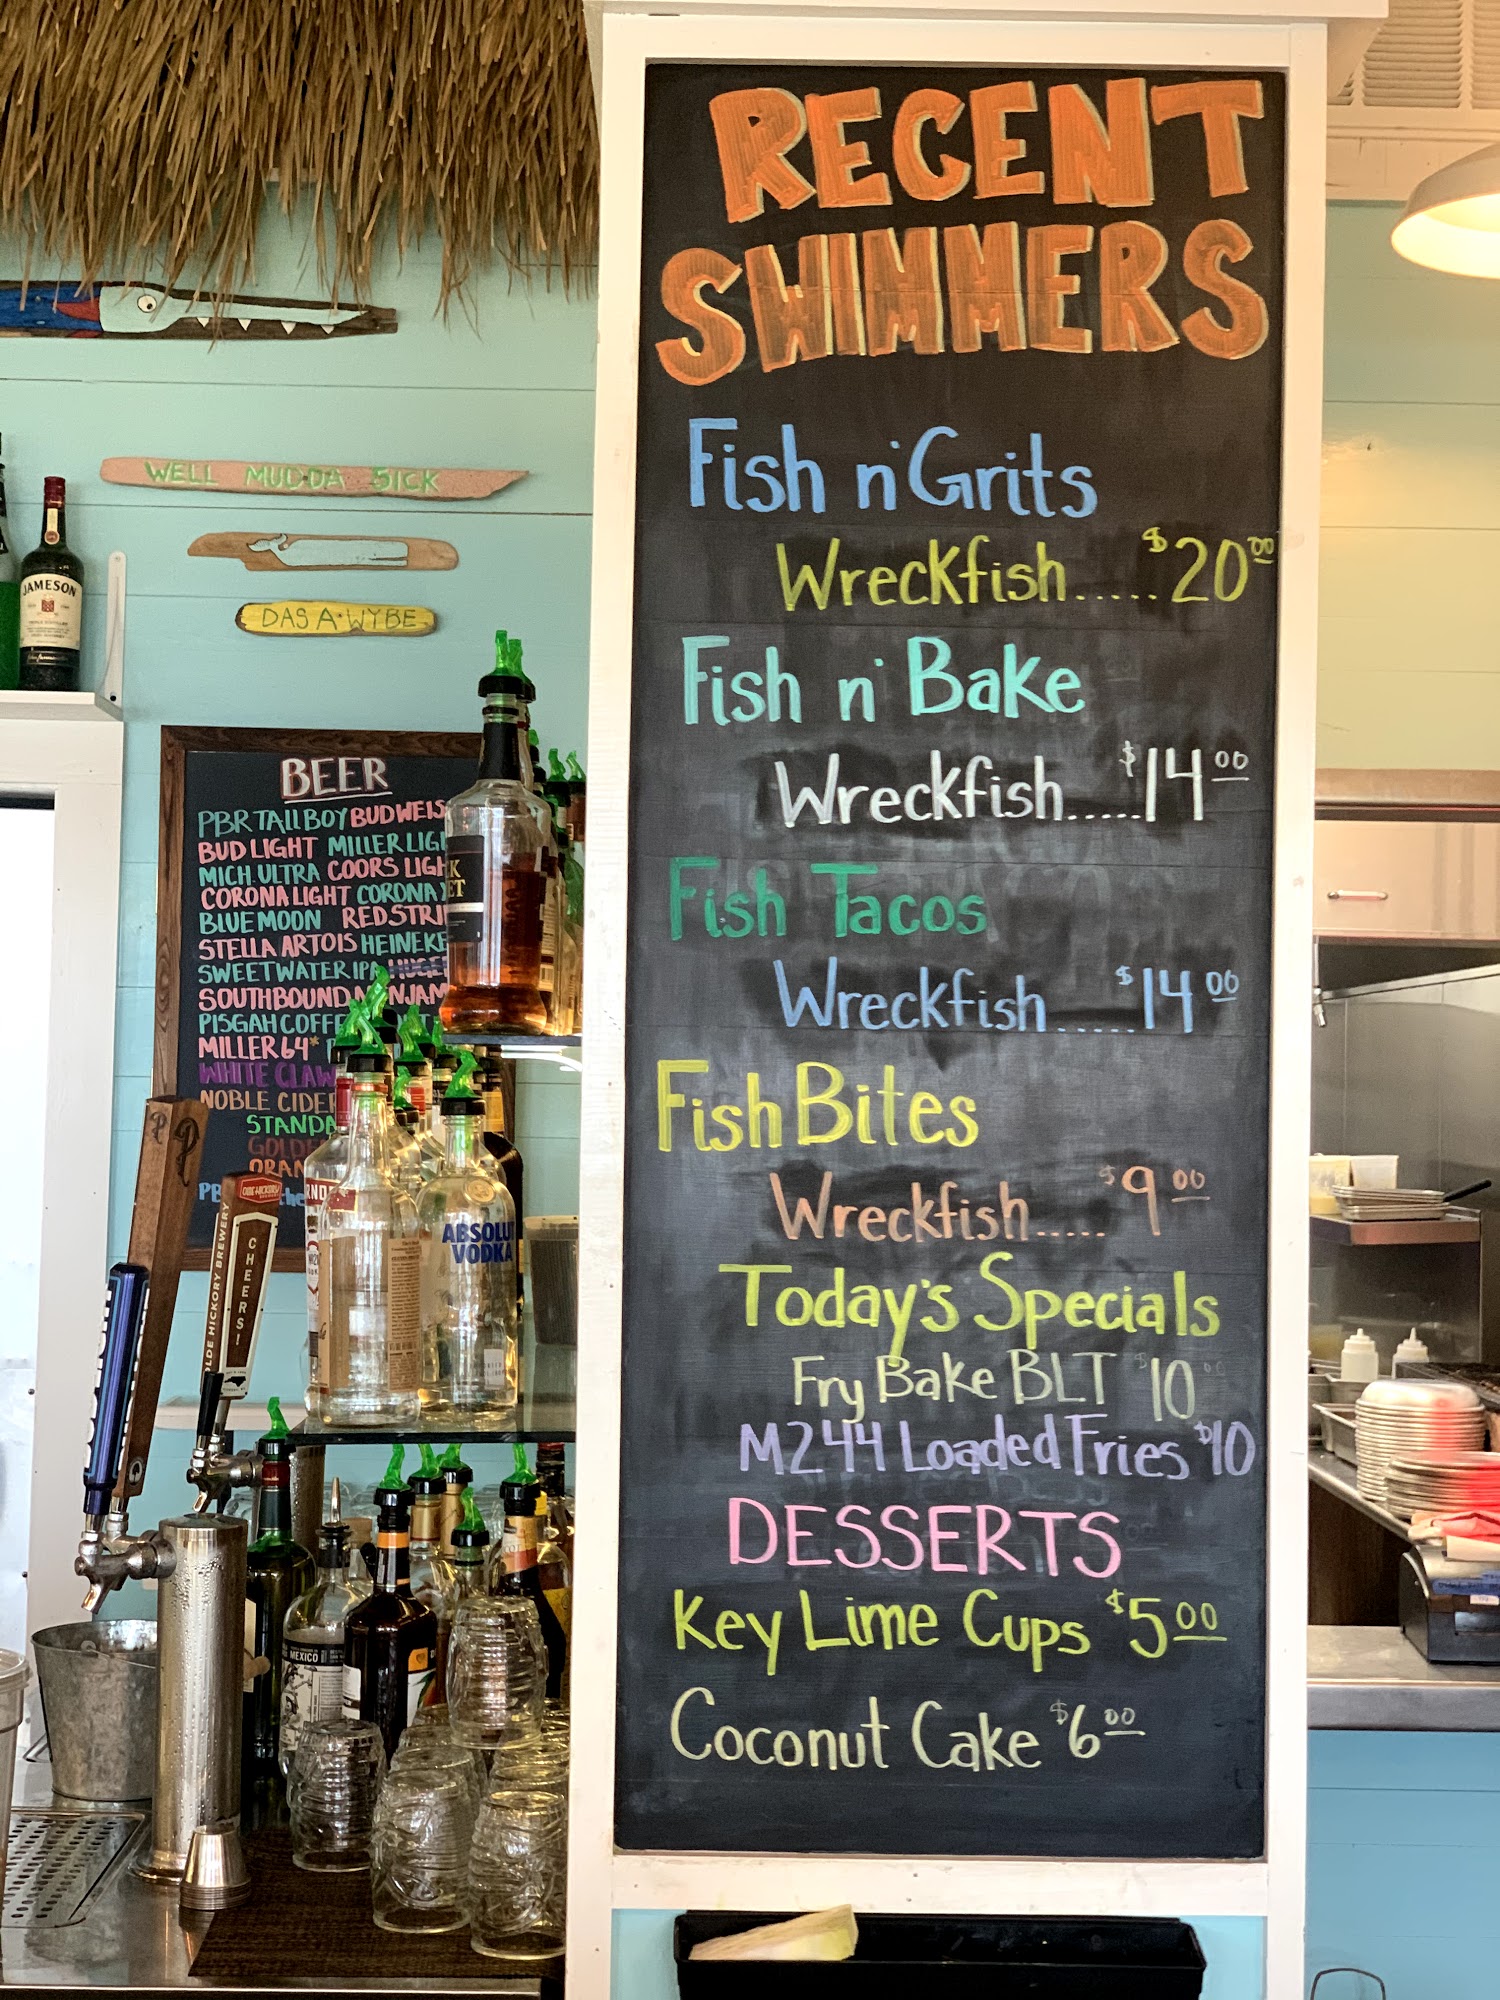 RECENT
SWIMMERS
Fish n' Grits
Wreckfish..... $20.00
Fish n' Bake
Wreckfish..... $14.00
Fish Tacos
Wreckfish..... $14.00
Fish Bites
Wreckfish..... $9.00
Today's Specials
Fry Bake BLT $10.00
M244 Loaded Fries $10
DESSERTS
Key Lime Cups $5.00
Coconut Cake $6.00
WELL MUDDA SICK
DAS A WYBE
JAMESON
BEER
PBR TALLBOY BUDWEIS
BUD LIGHT MILLER LIGH
MICH. ULTRA COORS LIGH
CORONA LIGHT CORONA
BLUE MOON RED STRI
STELLA ARTOIS HEINEKE
SWEETWATER IPA
SOUTHBOUND
PISGAH COFFE
MILLER 64*
WHITE CLAW
NOBLE CIDER
STANDA
GOLD
ORAN
PB
ABSOLU
VODKA
OLDE HICKORY BREWERY
CHEERS!
MEXICO